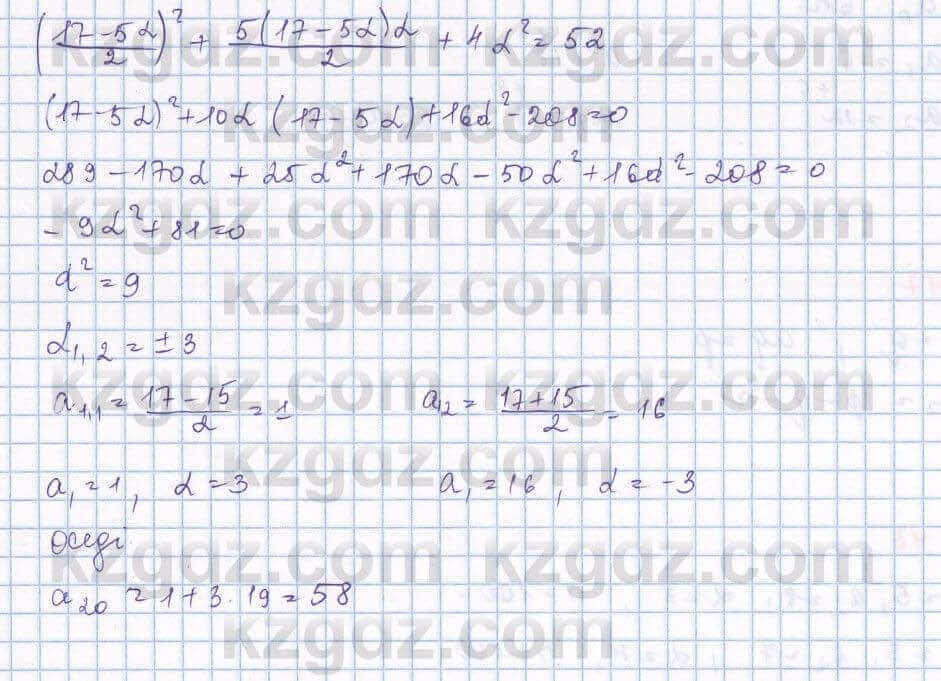 ((17-5d)/2)² + 5(17-5d)d/2 + 4d² = 52
(17-5d)² + 10d (17-5d) + 16d² - 208 = 0
289 - 170d + 25d² + 170d - 50d² + 16d² - 208 = 0
- 9d² + 81 = 0
d² = 9
d₁,₂ = ± 3
a₁,₁ = (17-15)/2 = 1    a₁₂ = (17+15)/2 = 16
a₁ = 1, d = 3    a₁ = 16, d = -3
өседі
a₂₀ = 1 + 3 · 19 = 58
kzgdz.com
kzgdz.com
kzgdz.com
kzgdz.com
kzgdz.com
kzgdz.com
kzgdz.com
kzgdz.com
kzgdz.com
kzgdz.com
kzgdz.com